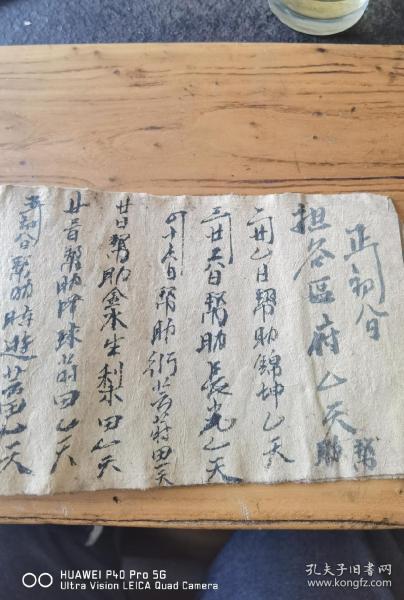 正初八日
担谷区府乙天
帮助
二廿乙日帮助锦坤乙天
三廿六日帮助長光乙天
四十六日帮助衍芳莳田一天
廿日帮助金水生犁田乙天
廿三日帮助降球莳田乙天
帮助
乙天
孔夫子旧书网
www.kongfz.com
HUAWEI P40 Pro 5G
Ultra Vision LEICA Quad Camera